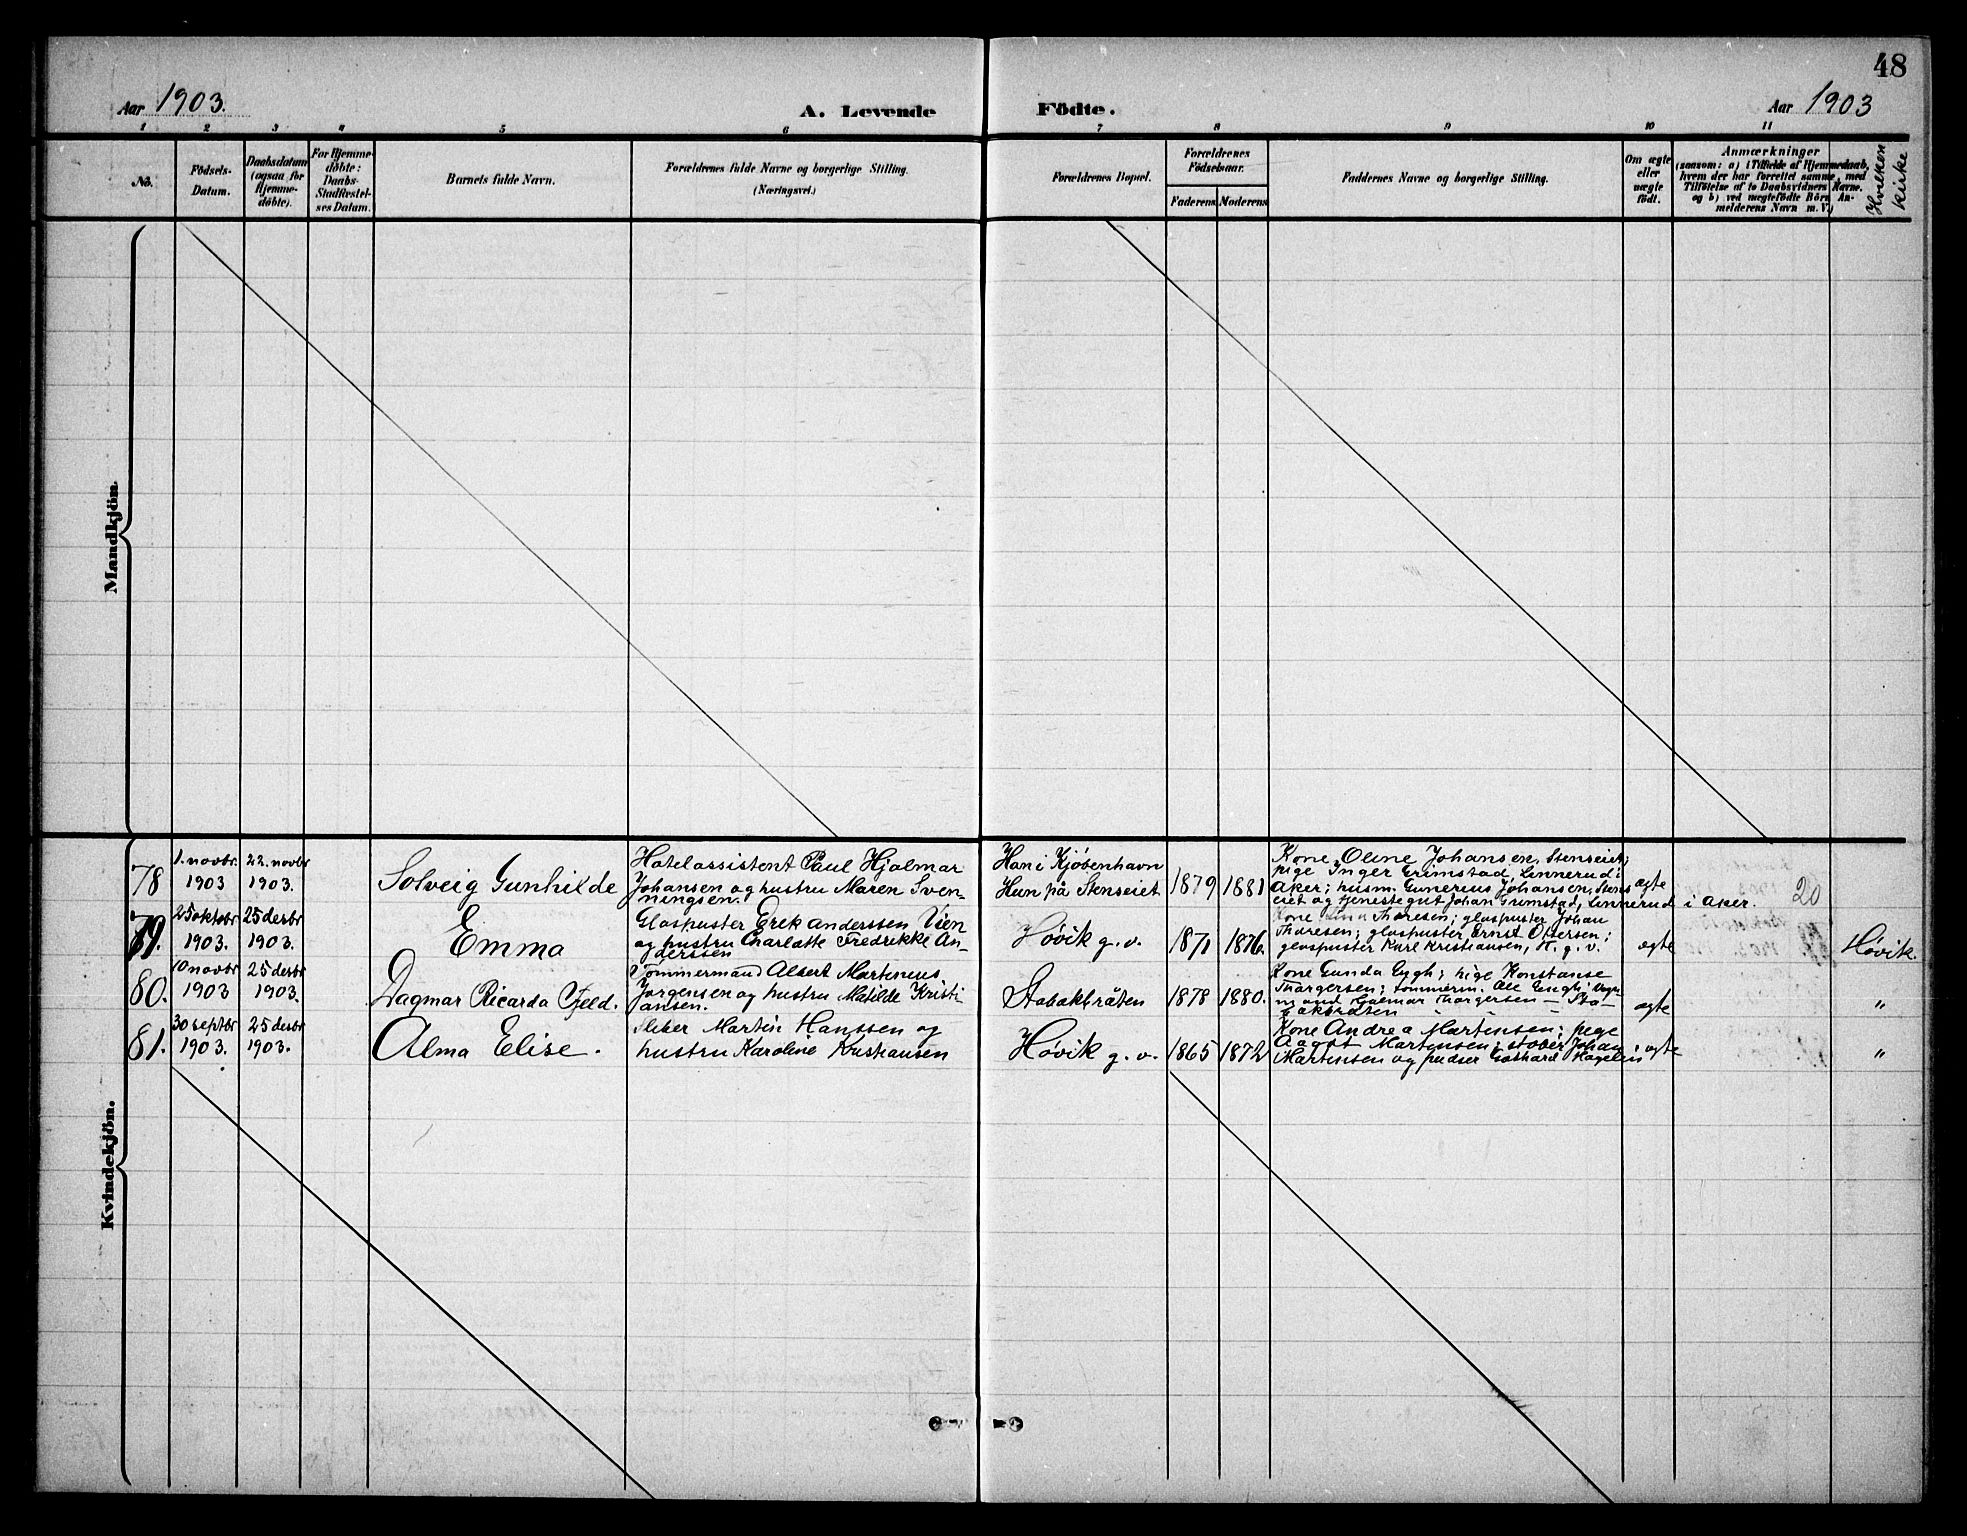 48
Aar 1903.
A. Levende Födte.
Aar 1903
1 2 3 4 5 6 7 8 9 10 11
No.
Födsels-
Datum.
Daabsdatum
(ogsaa for
Hjemme-
döbte).
For Hjemme-
döbte:
Daabs-
Stadfæstel-
ses Datum.
Barnets fulde Navn.
Forældrenes fulde Navne og borgerlige Stilling.
(Næringsvei.)
Forældrenes Bopæl.
Forældrenes
Födselsaar.
Faderens Moderens
Faddernes Navne og borgerlige Stilling.
Om ægte
eller
uægte
födt.
Anmærkninger
(saasom: a) i Tilfælde af Hjemmedaab,
hvem der har forrettet samme, med
Tilföielse af to Daabsvidners Navne.
og b) ved uægtefödte Börn An-
melderens Navn m. V.)
Hvilken
kirke
Mandkjön.
Kvindekjön.
78
1. novbr.
1903
22. novbr
1903.
Solveig Gunhilde
Hotelassistent Paul Hjalmar
Johansen og hustru Maren Sven-
ningsen.
Han i Kjøbenhavn
Hun på Stenseiet
1879 1881
Kone Oline Johansen, Stenseiet;
pige Inger Grimstad, Linnerud i
Aker; husm. Gunerius Johansen, Stens
eiet og tjenestegut Johan Grimstad, Linnerud i Aker.
ægte
20
79.
25 oktobr
1903.
25 desbr
1903.
Emma
Glaspuster Erek Anderssen Vien
og hustru Charlotte Fredrikke An-
derssen
Høvik g. v.
1871 1876.
Kone Thoresen; glaspuster Johan
Thoresen; glaspuster Ernst Ottersen;
glaspuster Karl Kristiansen, H. g. v.
ægte
Høvik.
80.
10 novbr
1903
25 desbr
1903.
Dagmar Ricarda Fjeld.
Tømmermand Albert Martinius
Jørgensen og hustru Matilde Kristi
ansen.
Stabakbråten
1878 1880.
Kone Gunda Engh; pige Konstanse
Thorgersen; tømmerm. Engh;
mand Hjalmar Thorgersen — Sta-
bakbråten
ægte
"
81.
30 septbr
1903.
25 desbr
1903.
Alma Elise.
Sliber Martin Hanssen og
hustru Karoline Kristiansen
Høvik g. v.
1865 1872
Kone Andrea Martinsen; pige
Aagot Martinsen; støber Johan
Martinsen og pudser Gothard Hagelin
ægte
"